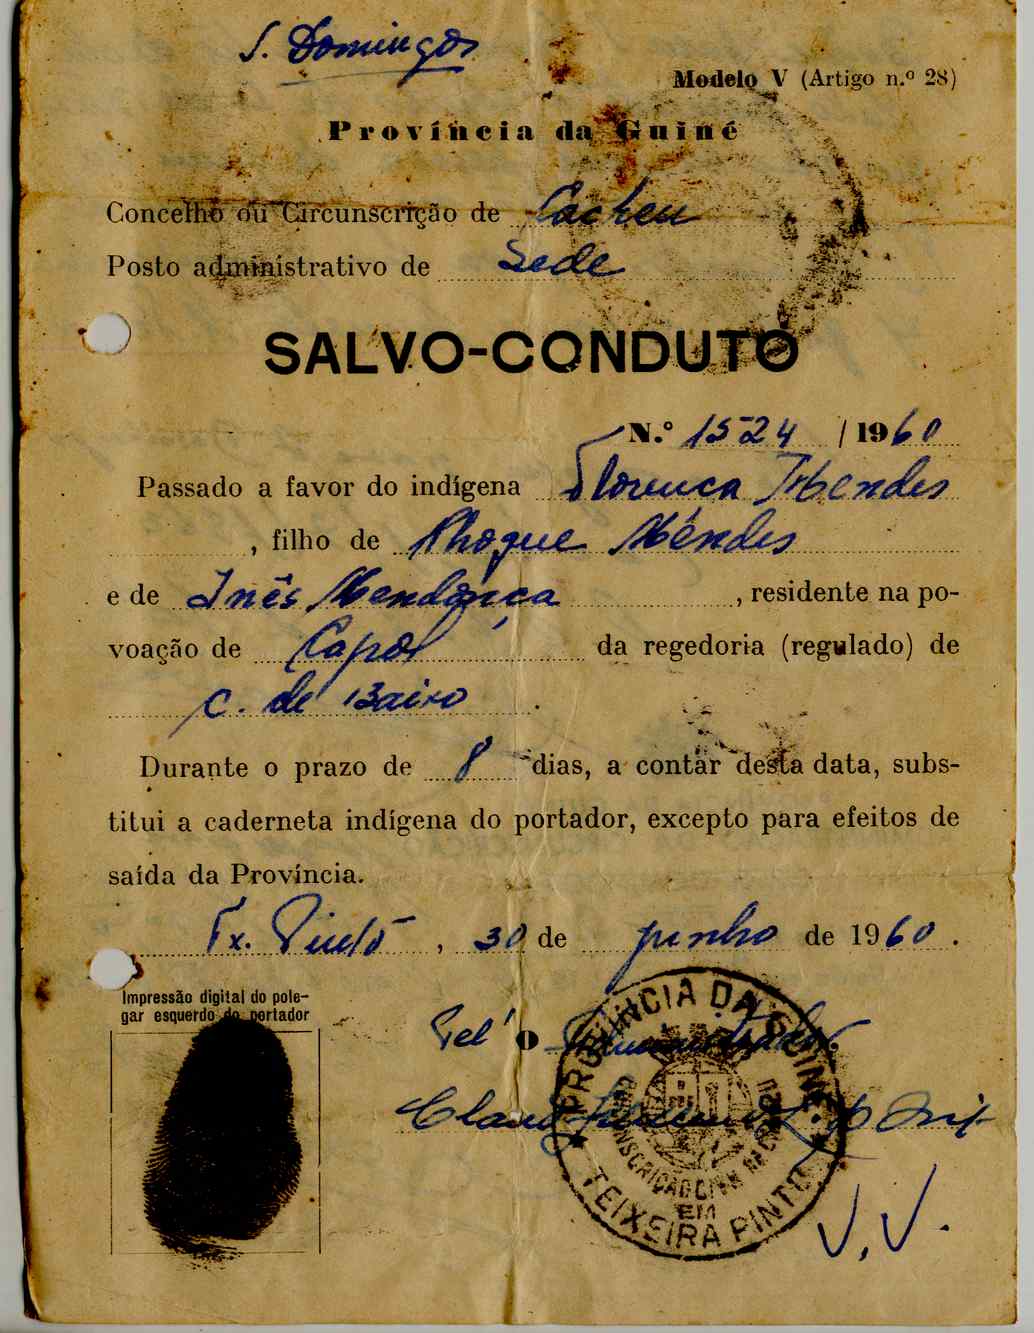 S. Domingos
Modelo V (Artigo n.º 28)
Província da Guiné
Concelho ou Circunscrição de Cacheu
Posto administrativo de Sede
SALVO-CONDUTO
N.º 1524 / 1960
Passado a favor do indígena Florença Mendes
, filho de Phoque Mendes
e de Inês Mendonça , residente na po-
voação de Capol da regedoria (regulado) de
C. de Bairo .
Durante o prazo de 8 dias, a contar desta data, subs-
titui a caderneta indígena do portador, excepto para efeitos de
saída da Província.
Tx. Pinto , 30 de junho de 1960 .
Impressão digital do pole-
gar esquerdo do portador
Pel' O Administrador,
PROVÍNCIA DA GUINÉ
CIRCUNSCRIÇÃO CIVIL
EM
TEIXEIRA PINTO
V. V.